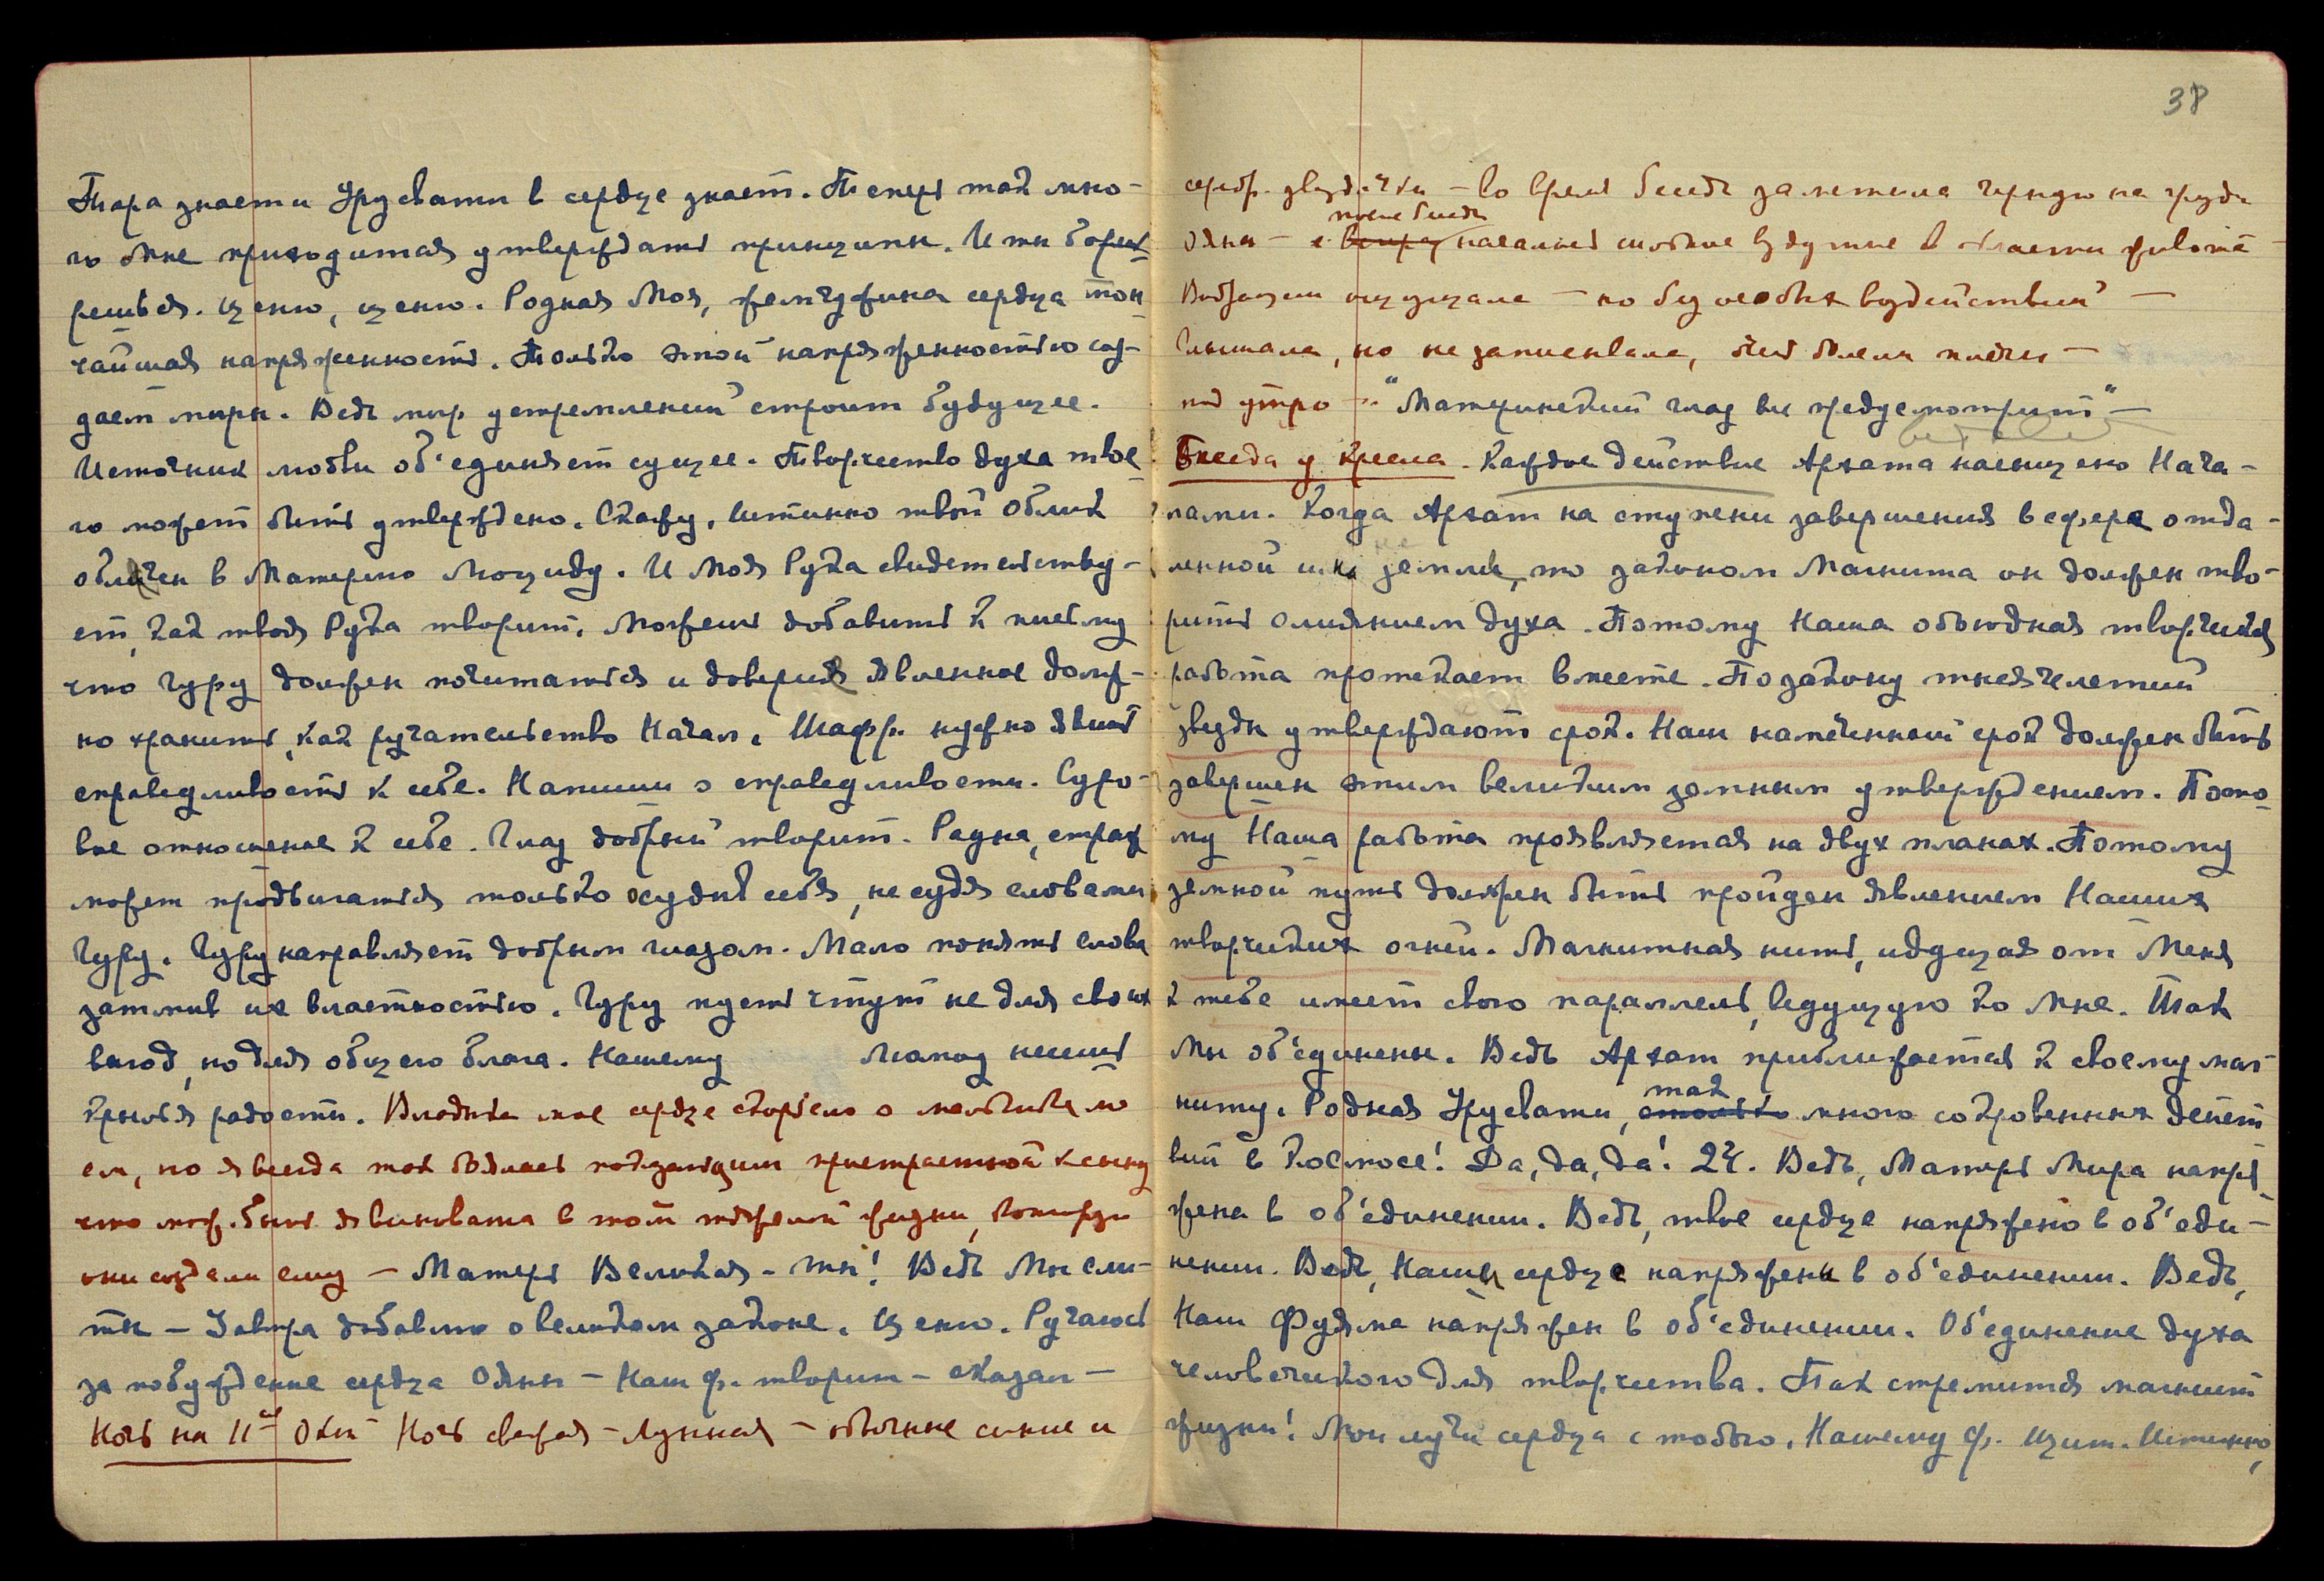 Тара знает и Урусвати в сердце знает. Теперь так мно-
го Мне приходится утверждать принципы. И ты борешь
решься. Ценю, ценю. Родная Моя, жемчужина сердца тон
чайшая напряженность. Только этой напряженностью соз-
даем миры. Ведь мир устремлений строит будущее.
Источник любви об'единяет сущее. Творчество духа твое-
го может быть утверждено. Скажу, истинно твой Облик
облечен в Материю Люциду. И Моя Рука свидетельству-
ет, как твоя Рука творит. Можешь добавить к письму
что Гуру должен почитаться и доверие явленное долж-
но хранить, как ручательство Начал. Шафр. нужно явить
справедливость к себе. Напиши о справедливости. Суро-
вое отношение к себе. Глаз добрый творит. Радна, страх
может продвигаться только осудив себя, не судя словами
Гуру. Гуру направляет добрым глазом. Мало понять слова
затмив их властностью. Гуру пусть чтут не для своих
выгод, но для общего блага. Нашему
крылья радости. Владыка мое сердце
ем, но я всегда так боялась
что мож. быть я виновата в той тяжелой жизни,
они создали ему — Матерь Великая - ты! Ведь Мы сли-
ты — Завтра добавлю о великом законе. Ценю. Ручаюсь
за побуждение сердца Ояны — Наш ф. творит — сказал —
Ночь на 11ое Окт. Ночь свежая — Лунная — обычные синие и
38
серебр. звездочки — во время беседы заметила черную на груди
Ояны — после беседы
ощущала — но без особых воздействий —
Слышала, но не записывала,
под утро — "Материнский глаз все предусмотрит" —
Беседа у Кресла. Каждое действие Архата насыщено Нача-
лами. Когда Архат на ступени завершения в сфере отда-
ленной земли, то законом Магнита он должен тво-
рить слиянием духа. Потому Наша обоюдная творческая
работа протекает вместе. По закону тысячелетий
звезды утверждают срок. Наш намеченный срок должен быть
завершен этим великим земным утверждением. Пото-
му Наша работа проявляется на двух планах. Потому
земной путь должен быть пройден явлением Наших
творческих огней. Магнитная нить, идущая от Меня
к тебе имеет свою параллель, ведущую ко Мне. Так
Мы об'единены. Ведь Архат приближается к своему маг-
ниту. Родная Урусвати, столько так много сокровенных дейст
вий в Космосе! Да, да, да! 24. Ведь, Матерь Мира напря
жена в об'единении. Ведь, твое сердце напряжено в об'еди-
нении. Ведь, Наши сердца напряжены в об'единении. Ведь,
Наш Фуяма напряжен в об'единении. Об'единение духа
человеческого для творчества. Так стремится магнит
жизни! Мои лучи сердца с тобою. Нашему Ф. щит. Истинно,